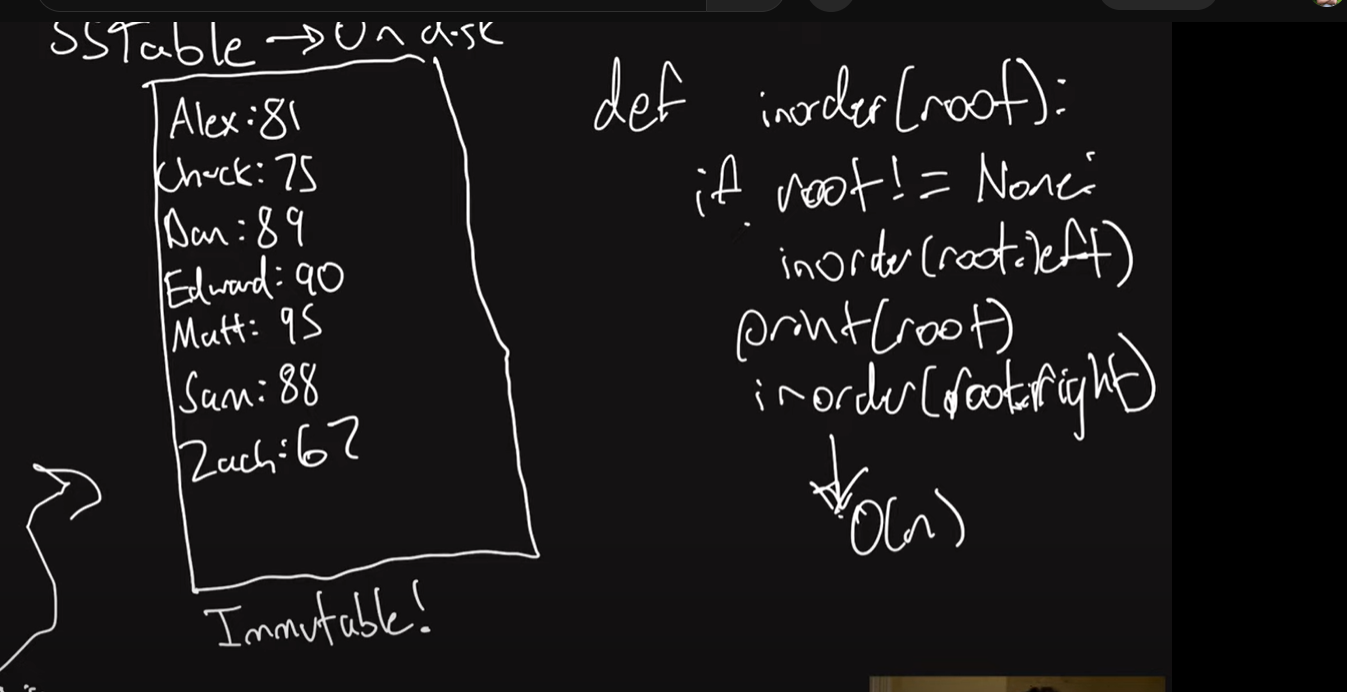 SSTable → On disk
Alex: 81
Chuck: 75
Dan: 89
Edward: 90
Matt: 95
Sam: 88
Zach: 62
Immutable!
def inorder(root):
if root != None:
inorder(root.left)
print(root)
inorder(root.right)
↓
O(n)